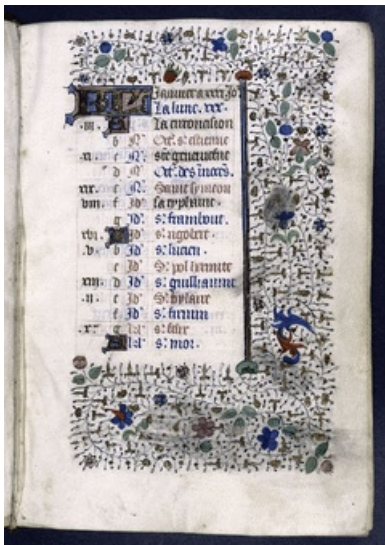 Januier a xxxi. jo.
La lune. xxx.
.iii. A La circoncision
b N. Oct. s. estienne
.xi. c N. ste geneuieue
d N. Oct. des innocens
xix. e N. Saint symeon
viii. f Id. La typhaine.
g Id. s. frambout.
xvi. A Id. s. rigobert.
.v. b Id. s. lucien.
c Id. S. pol hermite
xiii. d Id. s. guillaume
.ii. e Id. S. hylaire
f Id. s. firmin
.x. g kl. s. felix
A kl. s. mor.